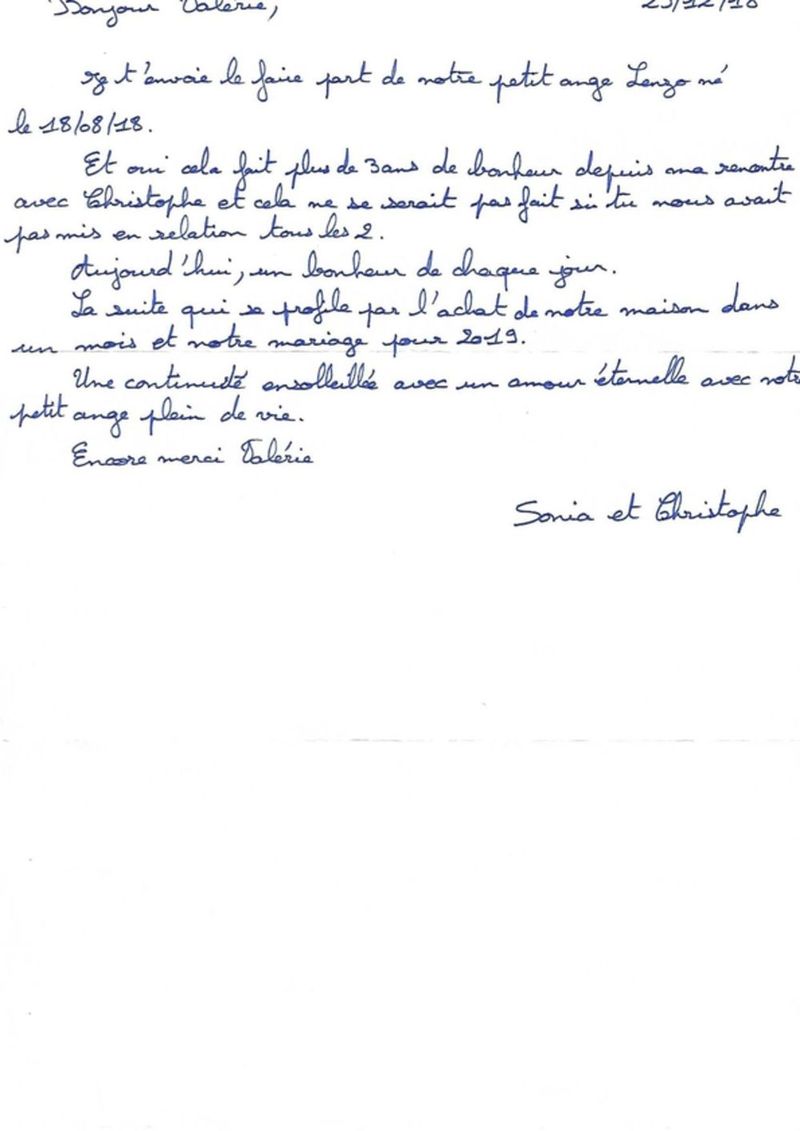 Bonjour Valérie, 23/12/18
Je t'envoie le faire part de notre petit ange Lenzo né
le 18/08/18.
Et oui cela fait plus de 3 ans de bonheur depuis ma rencontre
avec Christophe et cela ne se serait pas fait si tu nous avait
pas mis en relation tous les 2.
Aujourd'hui, un bonheur de chaque jour.
La suite qui se profile par l'achat de notre maison dans
un mois et notre mariage pour 2019.
Une continuité ensolleillée avec un amour éternelle avec notre
petit ange plein de vie.
Encore merci Valérie
Sonia et Christophe